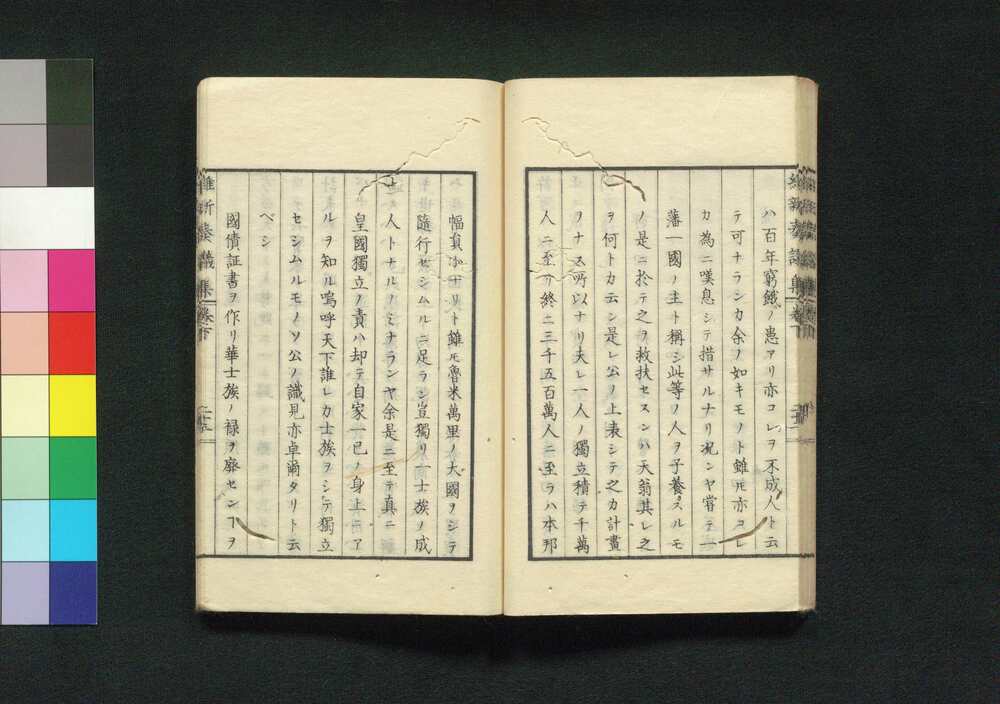 ハ百年窮餓ノ患アリ亦コレヲ不成人ト云
テ可ナランカ余ノ如キモノト雖𪜈亦コレ
カ為ニ嘆息シテ措サルナリ况ンヤ嘗テ一
藩一國ノ主ト稱シ此等ノ人ヲ子養スルモ
ノ是ニ於テ之ヲ救扶セスンハ天翁其レ之
ヲ何トカ云ン是レ公ノ上表シテ之カ計畫
ヲナス所以ナリ夫レ一人ノ獨立積テ千萬
人ニ至リ終ニ三千五百萬人ニ至ラハ本邦
幅員小ナリト雖𪜈魯米萬里ノ大國ヲシテ
隨行セシムルニ足ラン豈獨リ一士族ノ成
人トナルノミナランヤ余是ニ至テ真ニ
皇國獨立ノ責ハ却テ自家一已ノ身上ニア
ルヲ知ル嗚呼天下誰レカ士族ヲシテ獨立
セシムルモノソ公ノ識見亦卓爾タリト云
ベシ
國債証書ヲ作リ華士族ノ禄ヲ廢センヿヲ
維新奏議集 卷下